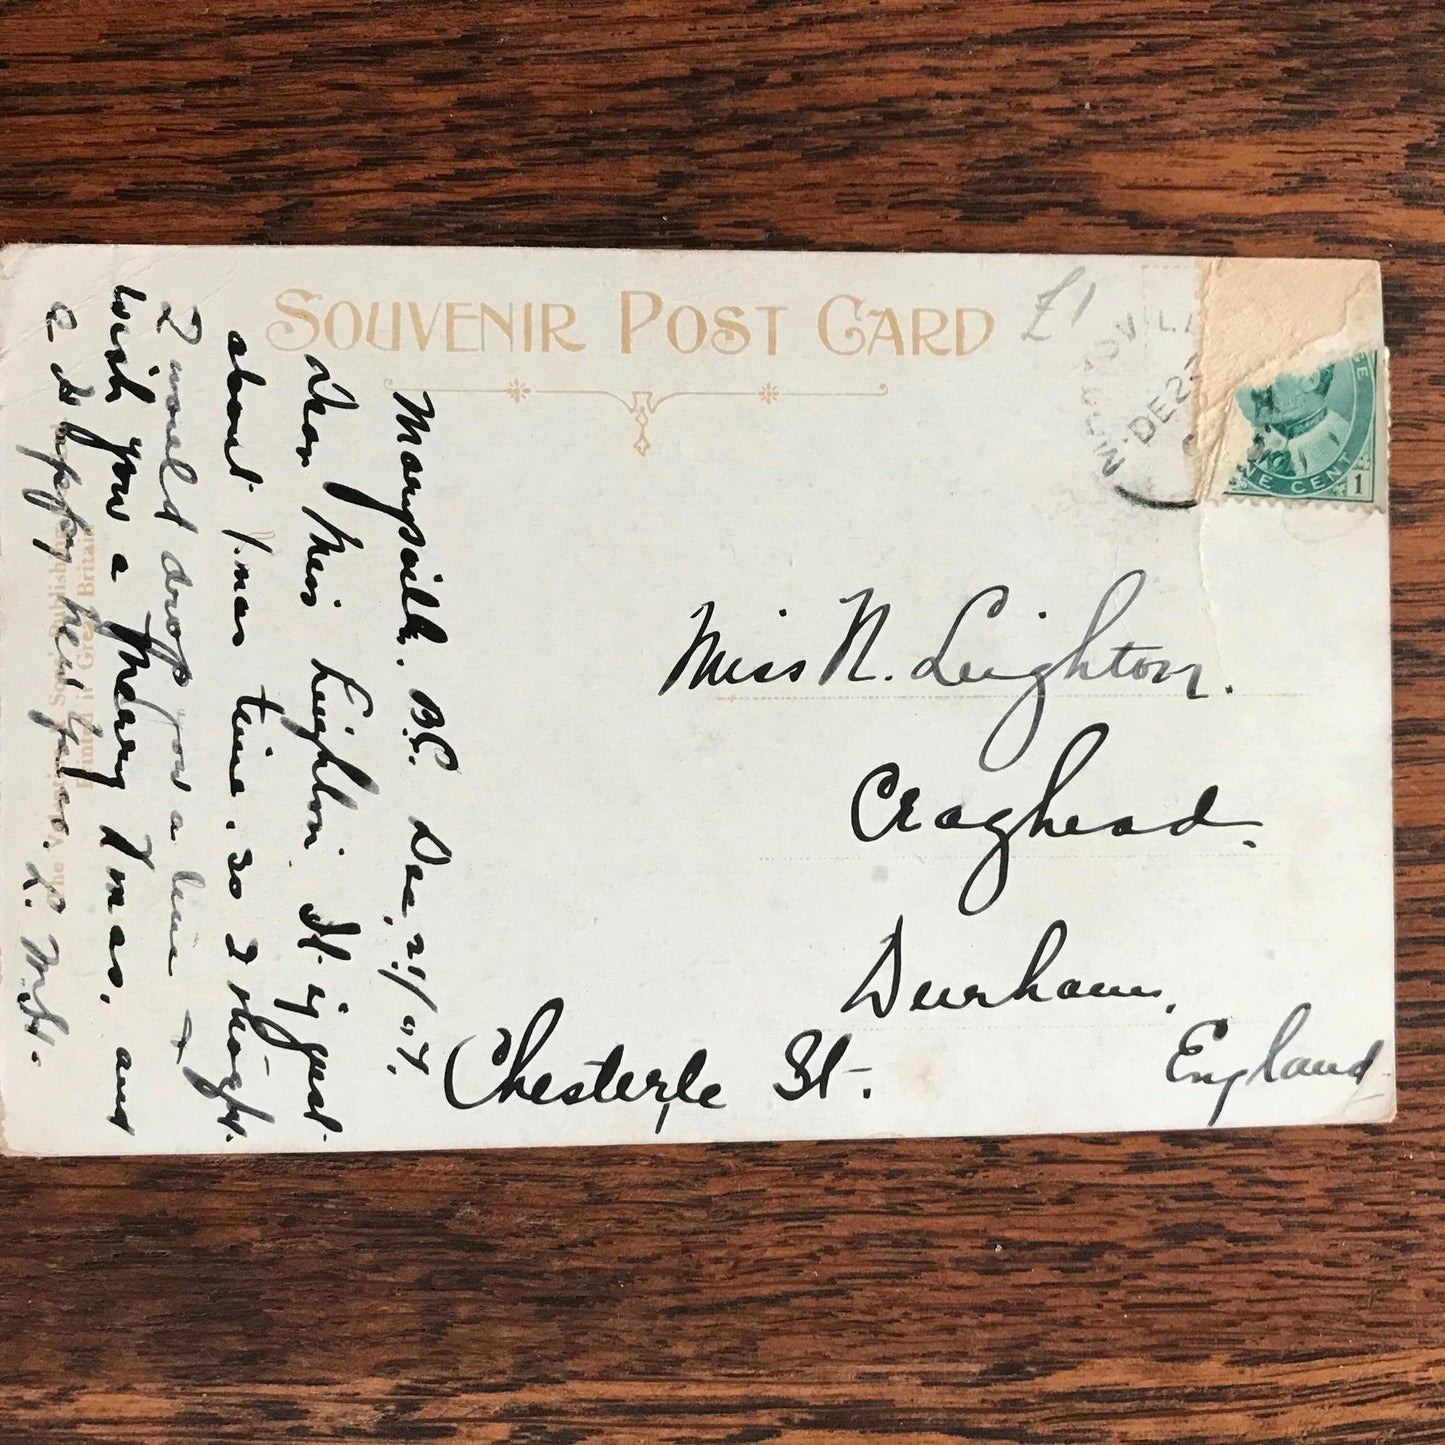 SOUVENIR POST CARD
£1
DE 21
ONE CENT 1
Marysville. B.C. Dec, 21/07.
Dear Miss Leighton. It is just
about Xmas time. so I thought
I would drop you a line &
wish you a Merry Xmas. and
a Happy New Year. L. M. H.
Miss N. Leighton.
Craghead.
Durham,
Chester le St.
England
Printed in Great Britain